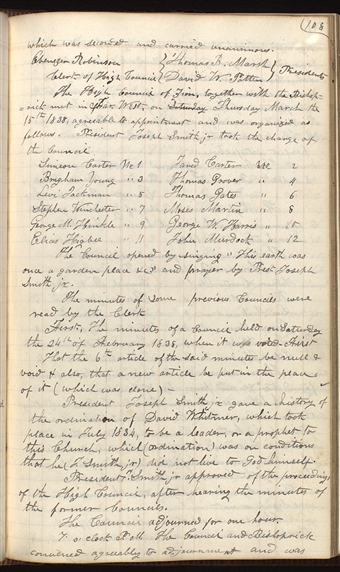 108
which was seconded and carried unanimous.
Ebenezer Robinson } Thomas B. Marsh } Presidents
Clerk of High Council } David W. Patten
The High Council of Zion, together with the Bishop-
rick met in Far West, on Saturday Thursday March the
15th 1838, agreeable to appointment and was organized as
follows. President Joseph Smith jr took the charge of
the Council
Simeon Carter No 1 Jared Carter No 2
Brigham Young " 3 Thomas Grover " 4
Levi Jackman " 5 Thomas Gates " 6
Stephen Winchester " 7 Moses Martin " 8
George M. Hinkle " 9 George W. Harris " 10
Elias Higbee " 11 John Murdock " 12
The Council opened by singing "This earth was
once a garden place &c" and prayer by Pres. Joseph
Smith Jr.
The minutes of some previous Councils were
read by the Clerk
First, The minutes of a Council held on Saturday
the 24th of February 1838, when it was voted First
That the 6th article of the said minutes be null &
void & also, that a new article be put in the place
of it (which was done) -
President Joseph Smith jr gave a history of
the ordination of David Whitmer, which took
place in July 1834, to be a leader, or a prophet to
this Church, which (ordination) was on conditions
that he (J. Smith jr) did not live to God himself.
President Smith jr approved of the proceedings
of the High Council, after hearing the minutes of
the former Councils.
The Council adjourned for one hour.
7. o. clock P.M. The Council and Bishoprick
convened agreeably to adjournment and was